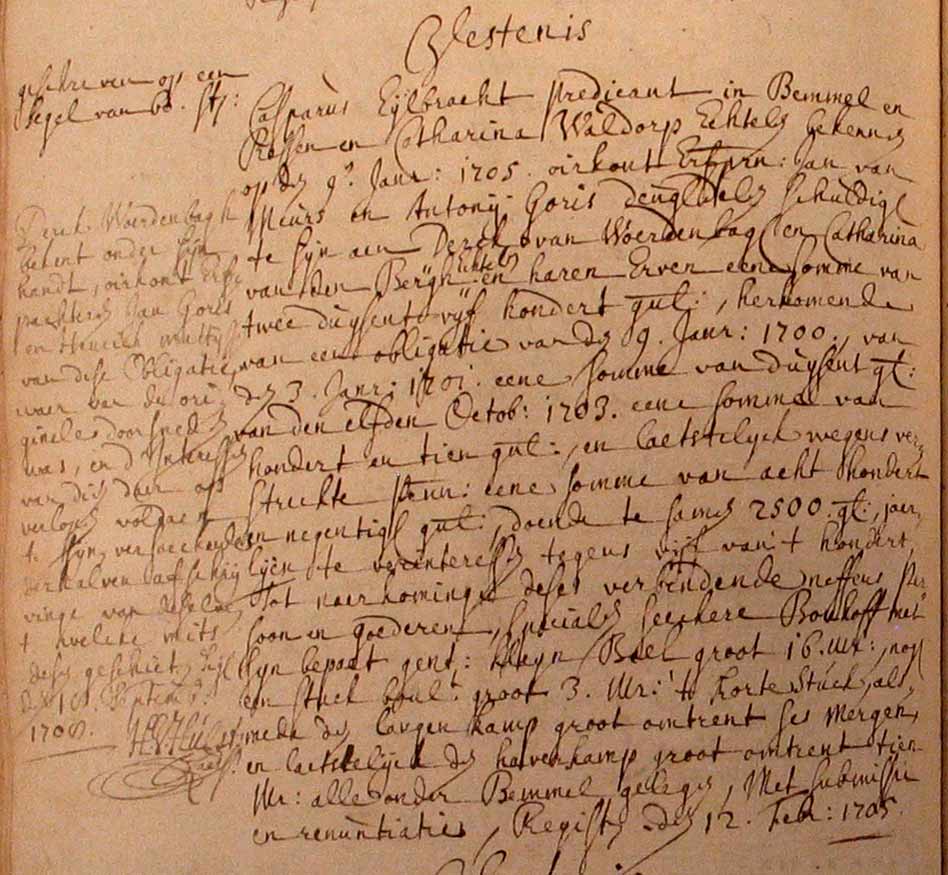 Vestenis
geschreven op een
segel van 60. st:
Casparus Eijlbracht predicant in Bemmel en
Ressen en Catharina Waldorp Echtel: bekennen
op den 9. Janr: 1705. oirkont Erfpen: Jan van
Meurs en Antonij Goris deuchdel: schuldigh
te sijn aen Derck van Woerdenbagh en Catharina
van den Bergh Echtel en haren Erven eene somme van
twee duijsent vijf hondert gul:, herkomende
van een obligatie van den 9. Janr: 1700., van
den 3. Janr: 1701. eene somme van duijsent gl:
van den elfden Octob: 1703. eene somme van
hondert en tien gul:, en laetstelijck wegens ver
streckte penn: eene somme van acht hondert
en negentigh gul:, doende te samen 2500. gl:, jaer
lijx te verinteressen tegens vijf van 't hondert,
Tot naerkominge deses verbindende neffens per
soon en goederen, specialen seeckere Bouhoff met
sijn bepaat gent: kleijn Bael groot 16. Mr:, nogh
een stuck boul: groot 3. Mr: 't korte stuck, als
mede den langen kamp groot omtrent ses mergen,
en laetstelijck den haverkamp groot omtrent tien
Mr: alle onder Bemmel gelegen, Met submissie
en renuntiatie, Registr: den 12. Feb: 1705.
Derck Woerdenbagh
bekent onder sijn
handt, oirkont Erf
pachteren Jan Goris
en Henrick
van dese Obligatie,
waer van de ori
ginele doorsneden
was, en d'Interesse
van dien daer op
verlopen voldaen
te sijn, versoeckende
derhalven d'afschrij
vinge van deselve
't welcke mits
desen geschiet,
den 18. Septemb:
1708.